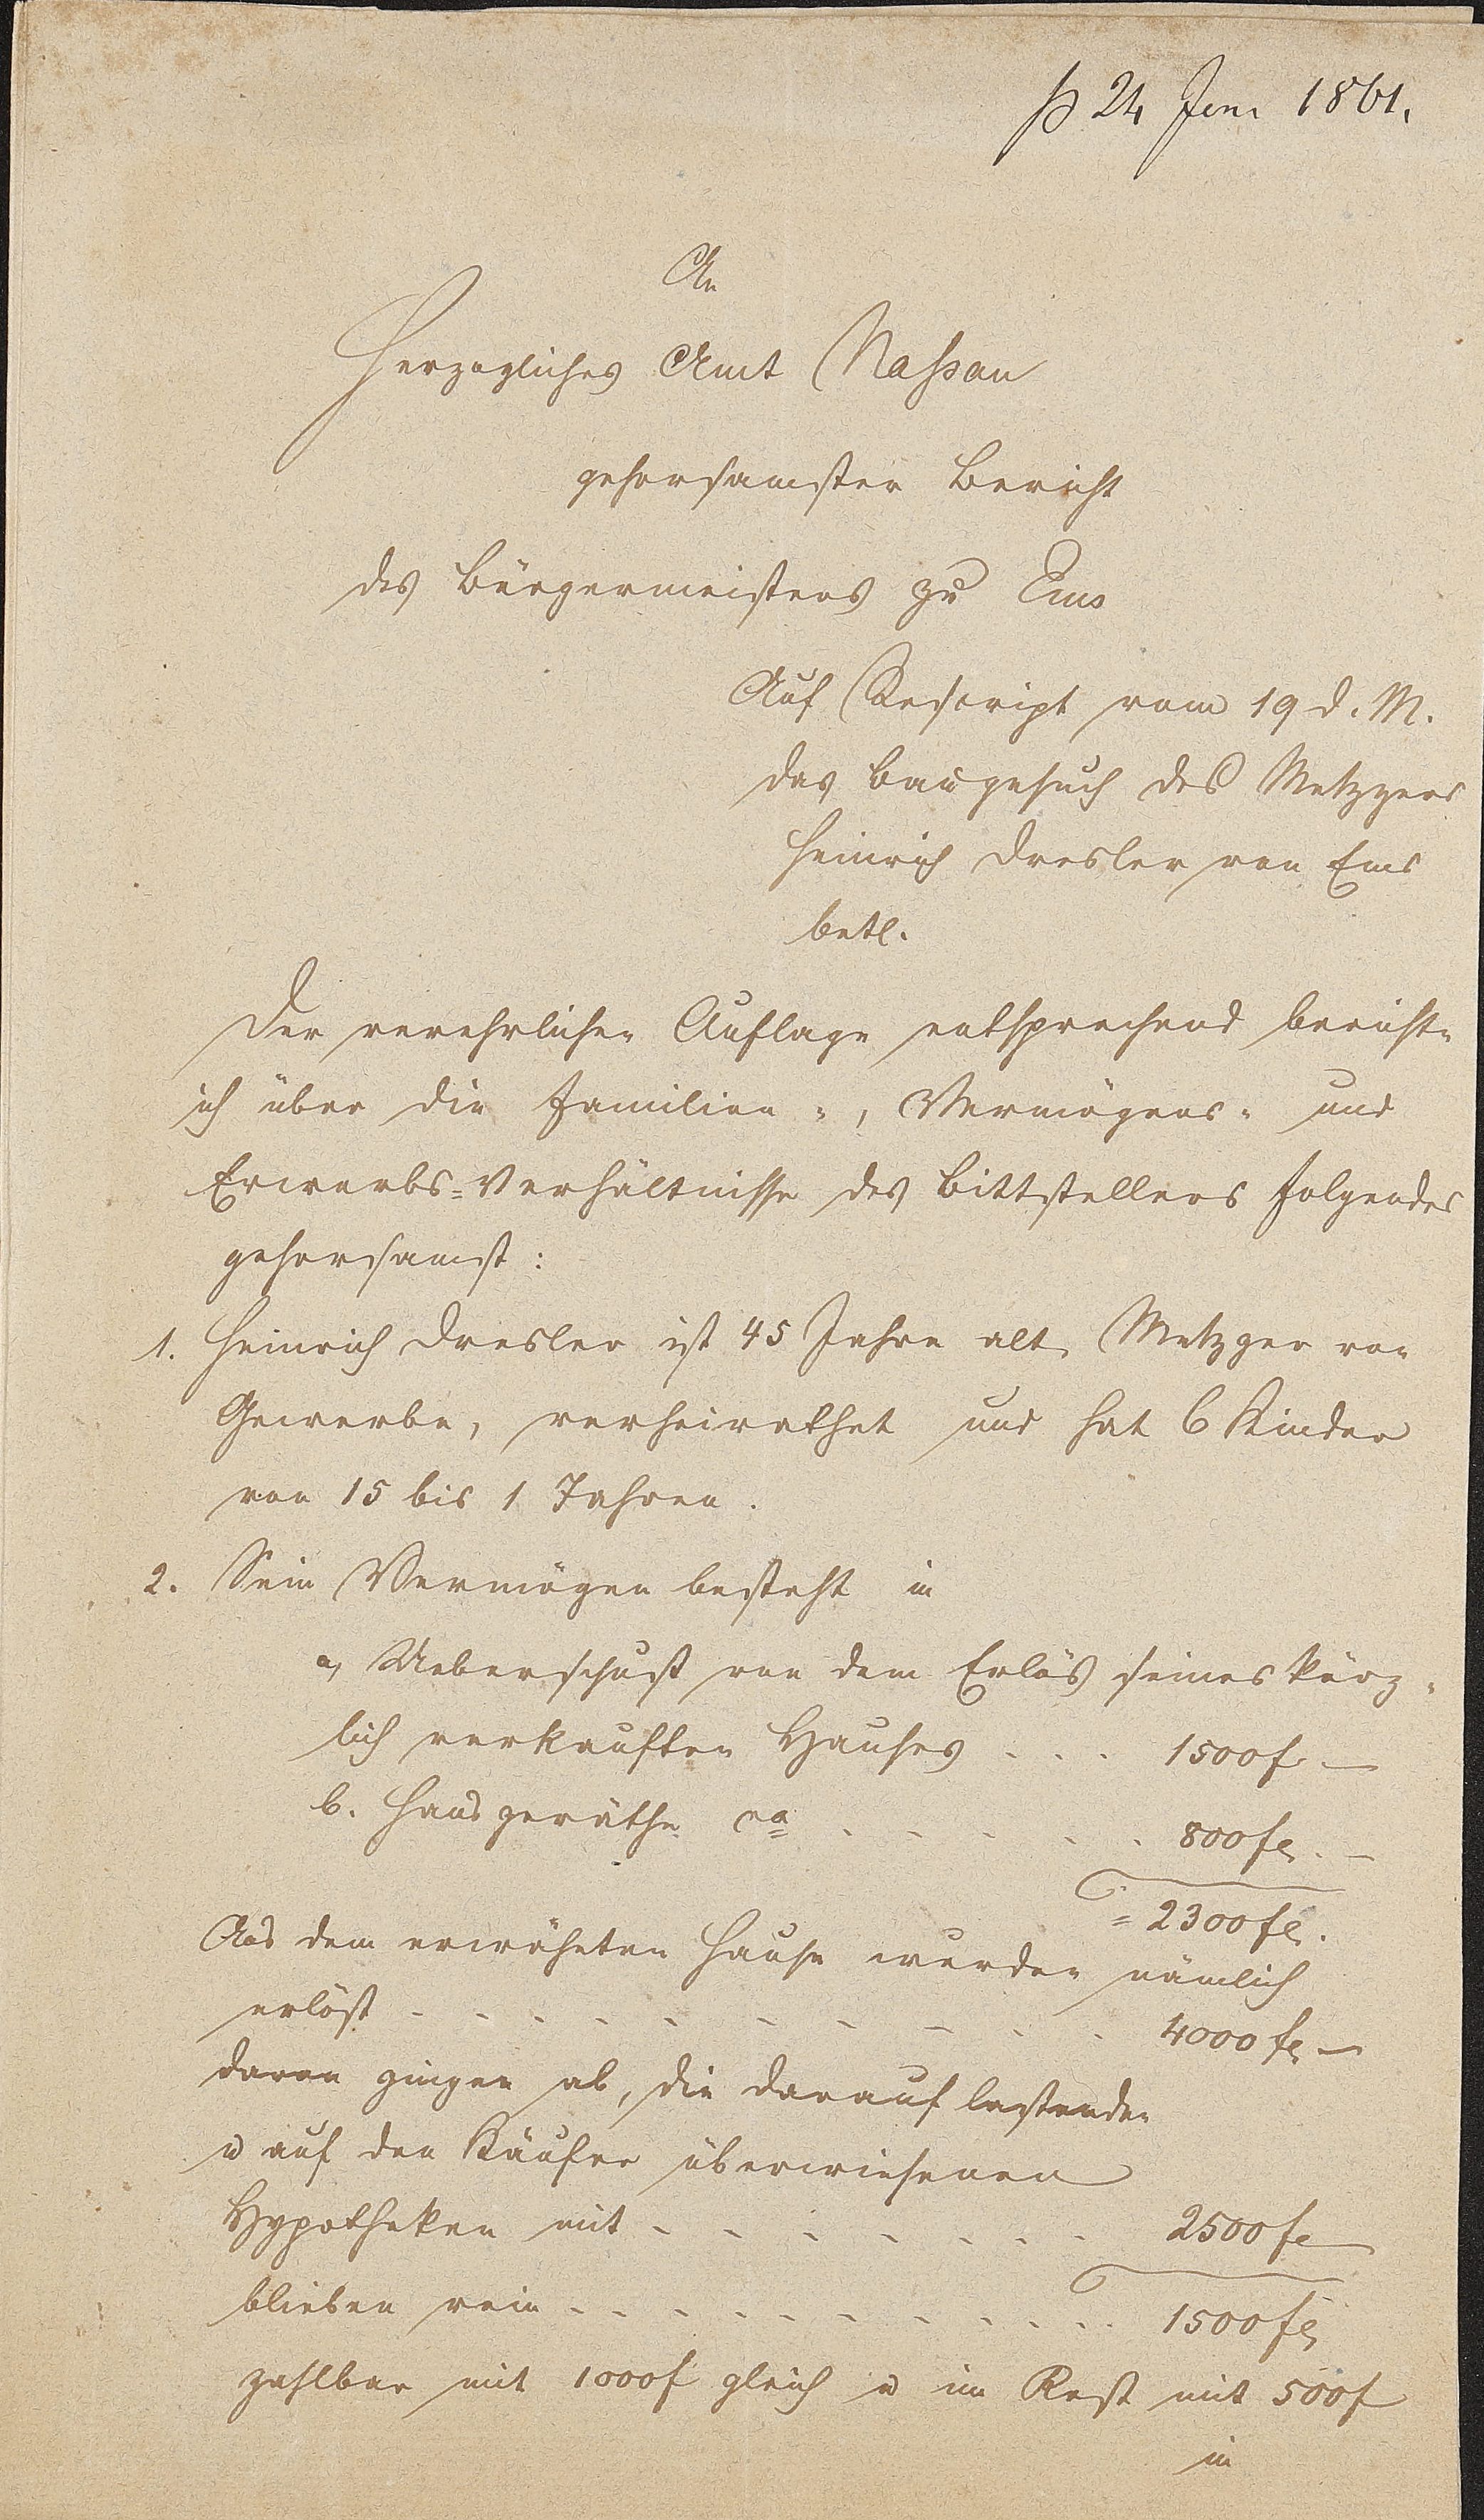 24 Juni 1861.
An
Herzogliches Amt Nassau
gehorsamster Bericht
des Bürgermeisters zu Ems
Auf Rescript vom 19 d. M.
das Baugesuch des Metzgers
Heinrich Dresler von Ems
betl.
Der verehrlichen Auflage entsprechend berichte
ich über die Familien-, Vermögens- und
Erwerbs-Verhältnisse des Bittstellers folgendes
gehorsamst:
1. Heinrich Dresler ist 45 Jahre alt, Metzger von
Gewerbe, verheirathet und hat 6 Kinder
von 15 bis 1 Jahren.
2. Sein Vermögen besteht in
a, Ueberschuß von dem Erlös seines kürz-
lich verkauften Hauses . . . 1500f —
b. Hausgeräthe ca . . . . . 800fl. —
= 2300fl.
Aus dem erwähnten Hause wurden nämlich
erlößt - - - - - - - - - - 4000 fl —
davon gingen ab, die darauf lastenden
u auf den Käufer überwiesenen
Hypotheken mit - - - - - - - 2500 fl
blieben rein - - - - - - - - - - 1500 fl,
zahlbar mit 1000f gleich u im Rest mit 500f
in